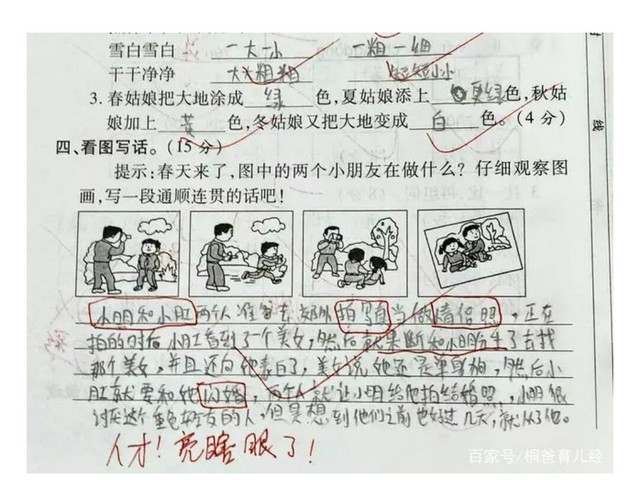 雪白雪白 一大一小 一粗一细
干干净净 大大粗粗 短短小小
3. 春姑娘把大地涂成 绿 色,夏姑娘添上 更绿 色,秋姑
娘加上 黄 色,冬姑娘又把大地变成 白 色。(4 分)
线
四、看图写话。(15 分)
提示:春天来了,图中的两个小朋友在做什么?仔细观察图
画,写一段通顺连贯的话吧!
小明和小肛两个人准备去郊外拍写真当做情侣照,正在
拍的时后小肛看到了一个美女,然后就果断和小明分手了去找
那个美女,并且还向她表白了,美女说她还是单身狗,然后小
肛就要和她闪婚,两个人就让小明给他拍结婚照,小明很
讨厌这个重色轻友的人,但是想到他们之前也好过几天,就从了他。
人才!亮瞎眼了!
百家号/桐爸育儿经